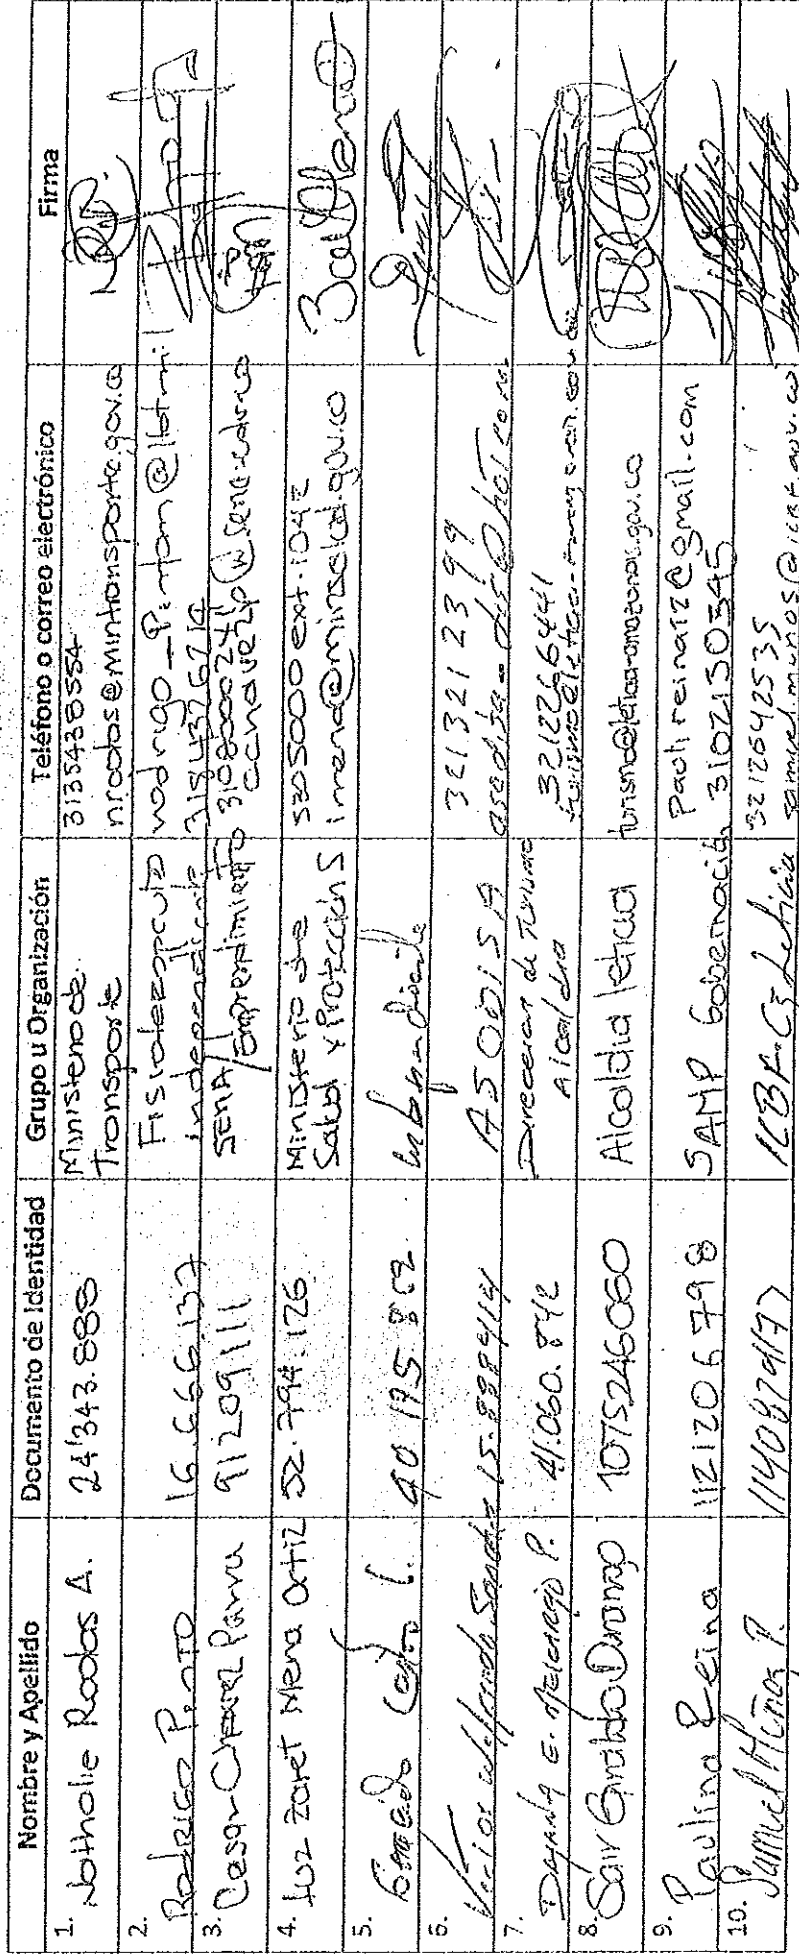 Nombre y Apellido Documento de Identidad Grupo u Organización Teléfono o correo electrónico Firma
1. Nathalie Rodas A. 24'343.888 Ministerio de Transporte 3135438554
nrodas@mintransporte.gov.co
2. Rodrigo Pinto 16.666.137 Fisioterapeuta independiente rodrigo_Pinton@Hotmail
3184376214
3. Cesar Chavez Parra 91209111 SENA/Emprendimiento 3108000241
cchavezp@sena.edu.co
4. Luz Zaret Mena Ortiz 52.794.126 Ministerio de Salud y Protección S 3305000 ext. 1042
lmena@minsalud.gov.co
5. Castro L. 40.175.862 Independiente
6. 15.888414 ASODISA 3213212399
7. P. 41.060.842 Direccion de Turismo Alcaldia 3212266441
8. Sair Giraldo Durango 1075246060 Alcaldia leticia turismo@leticia-amazonas.gov.co
9. Paulina Reina 1121206798 SAMP Gobernación Paolireinaiz@gmail.com
3102150345
10. Samuel Muñoz P. ICBF. Cz Leticia 3212642535